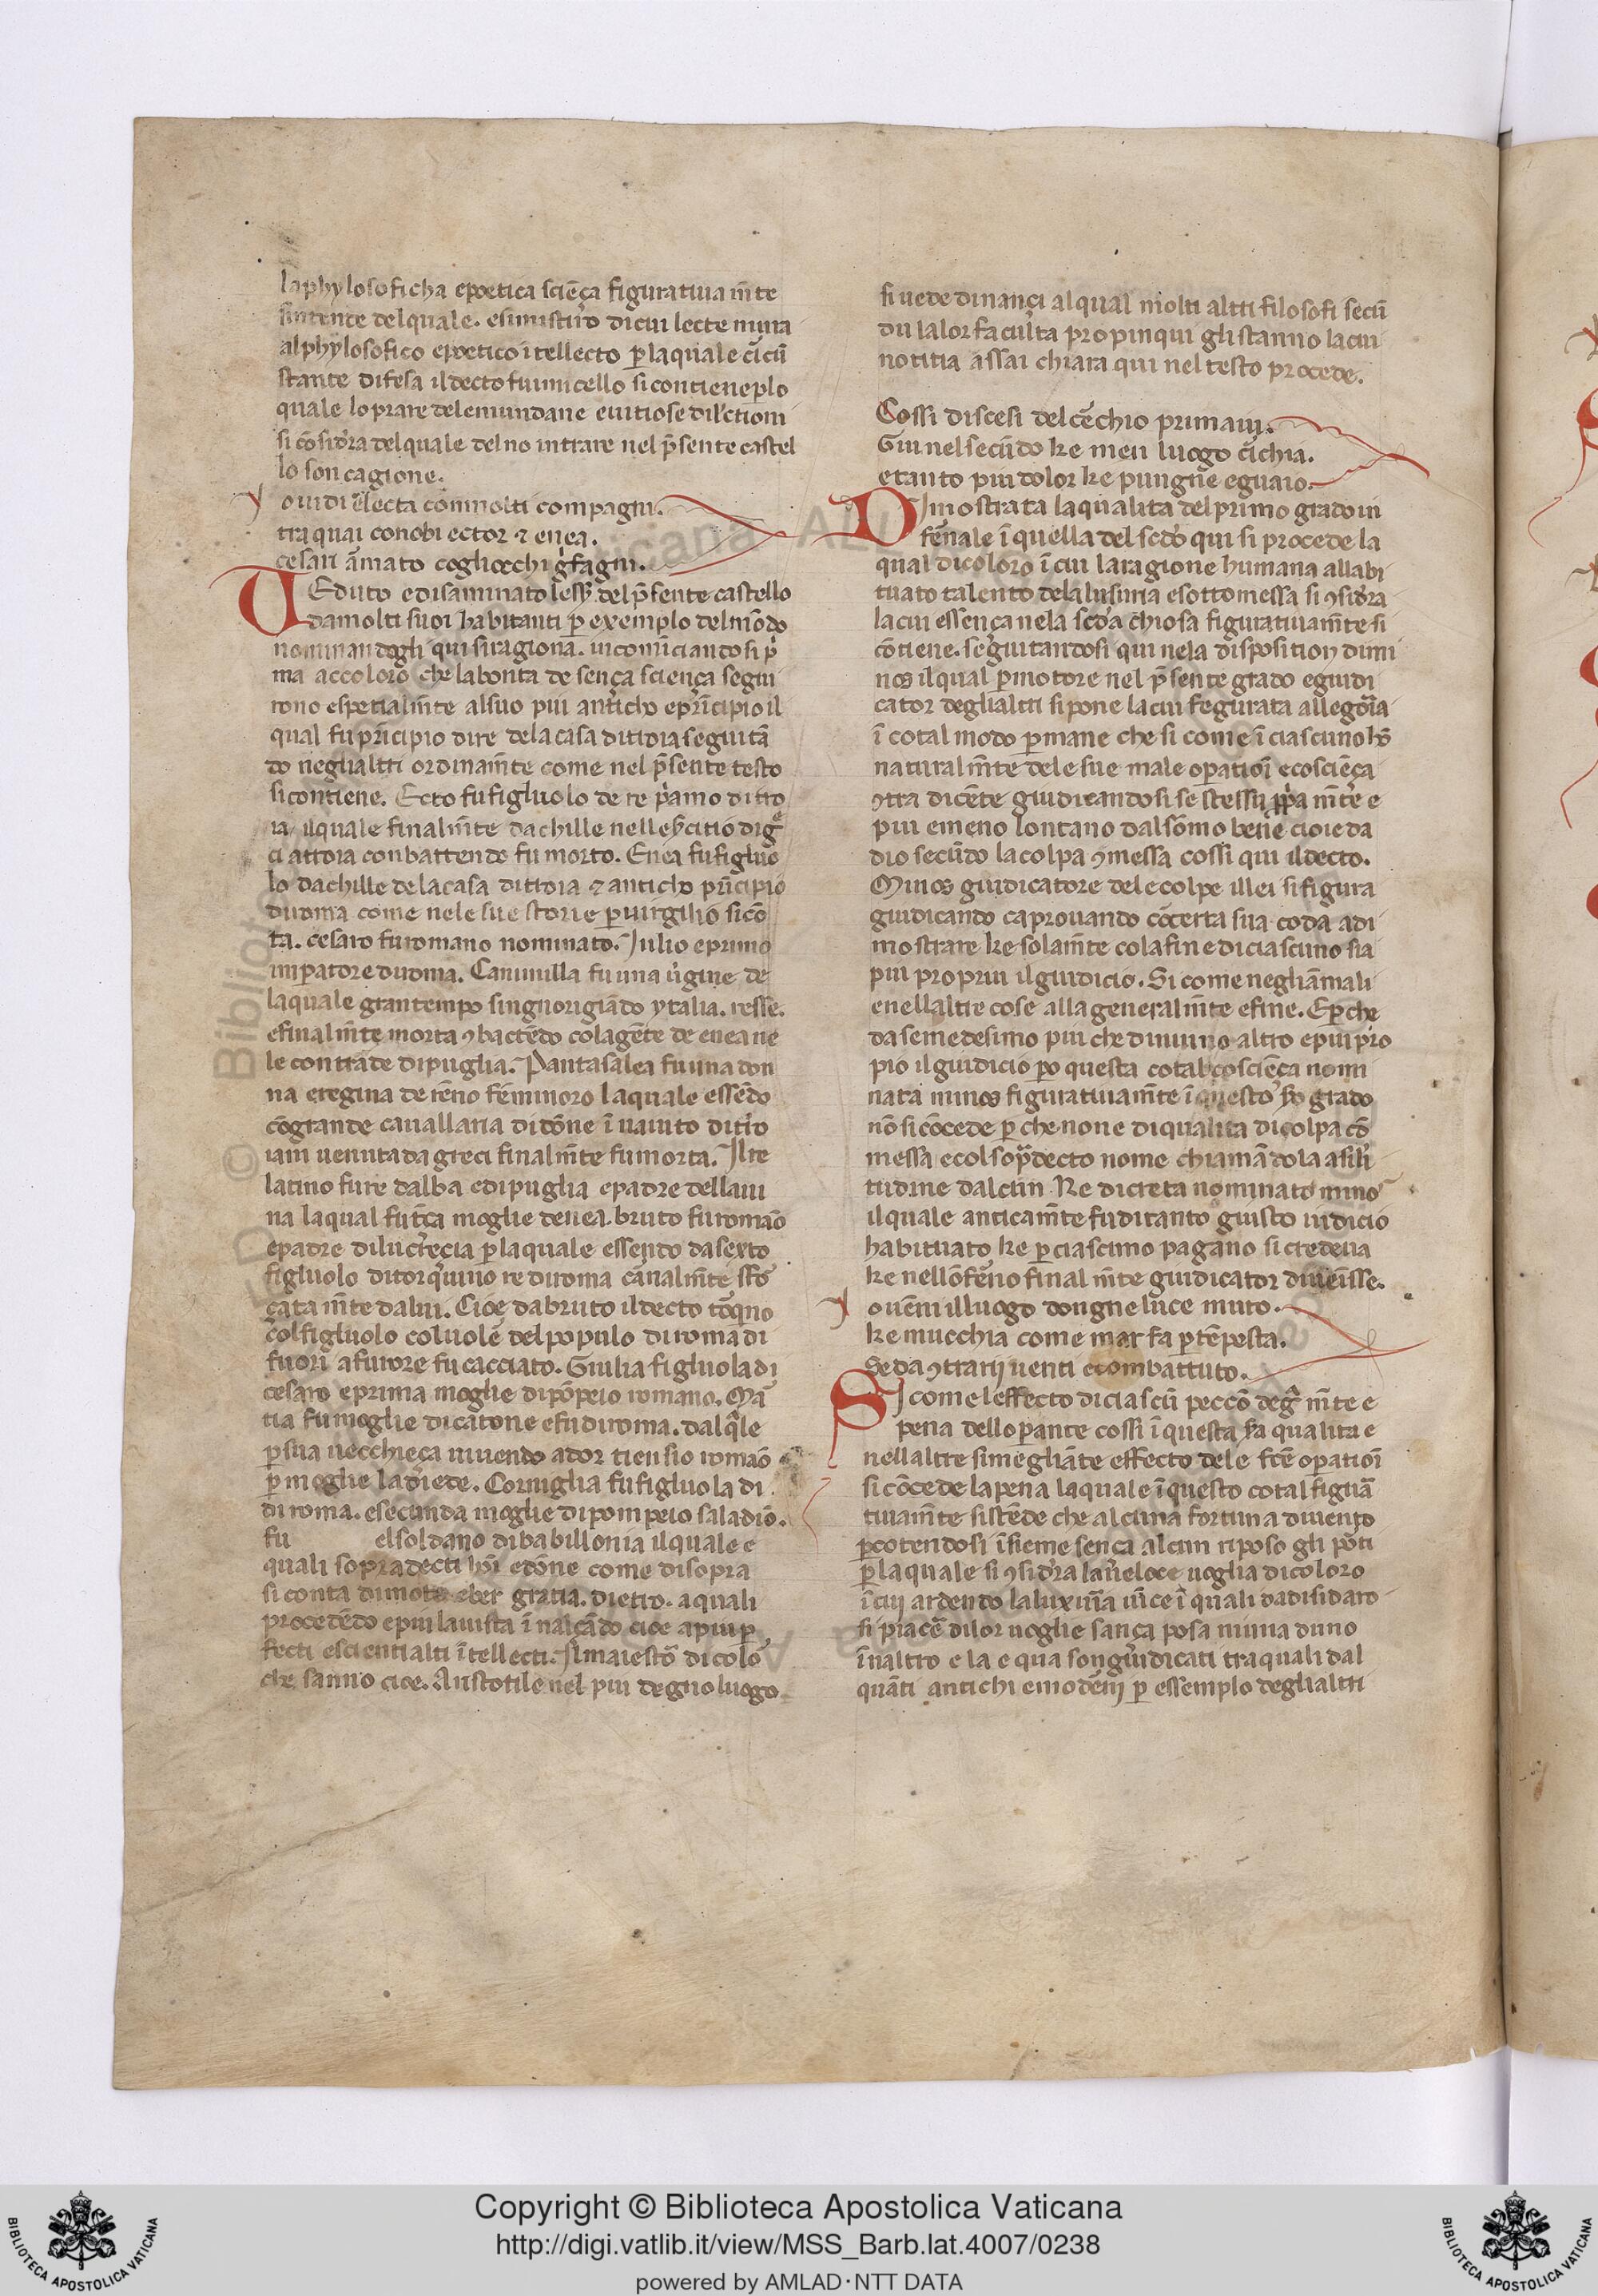 la phylosoficha e poetica sciēça figuratiua m̄te
sintence del quale. e simistrādo di cui lecte mura
al phylosofico e poetico ītellecto ꝑ la quale c̄icū
stante difesa il decto fiumicello si contiene ꝑ lo
quale loprare dele mundane e uitiose dilectioni
si cōsidra del quale del no intrare nel p̄sente castel
lo son cagione.
Y o uidi electa con molti compagni.
tra quai conobi ector ⁊ enea.
cesari āmato cogliocchi grifagni.
Ueduto e disaminato lessē del p̄sente castello
da molti suoi habitanti ꝑ exemplo del mōdo
nominandogli qui si ragiona. incominciandosi p̄
ma accoloro che la bonta de sença sciença segui
rono espetialm̄te al suo piu anticho e p̄ncipio il
qual fu p̄ncipio di re de la casa di troia seguitā
do negli altri ordinam̄te come nel p̄sente testo
si contiene. Ecto fu figluolo de re p̄amo di tro
ia il quale finalm̄te da chille nelleserc̄itio di g̃
ci a troia conbattendo fu morto. Enea fu figluo
lo dachille de la casa di troia ⁊ anticho p̄ncipio
di roma come nele sue storie ꝑ uirgilio si cō
ta. cesaro fu romano nominato. Julio e primo
imꝑatore di roma. Cammilla fu una u̇gine de
la quale gran tempo singnorigiādo ytalia. resse.
e finalm̄te morta ꝯbactēdo co la gēte de enea ne
le contrade di puglia. Pantasalea fu una don
na e regina de rēno fēmmoro la quale essēdo
cō grande cauallaria di dōne ī uaiuto di tro
iani uenuta da greci finalm̄te fu morta. Il re
latino fu re dalba e di puglia e padre dellaui
na la qual fu t̄ça moglie denea. bruto fu romāo
e padre di lucrecia ꝑ la quale essendo da sexto
figluolo di torq̇uino re di roma carnalm̄te sfo
çata m̄te da lui. Cioe da bruto il decto tōqno
col figluolo col uole del populo di roma di
fuori a furore fu cacciato. Giulia figluola di
cesaro e prima moglie di pōpeio romano. Mā
tia fu moglie di catone e fu di roma. dal qle
ꝑ sua uecchieça uiuendo ador tiensio romāo
ꝑ moglie la diede. Corniglia fu figluola di.
di roma. e secunda moglie di pompeio saladio.
fu el soldano di babillonia il quale e
quali sopradecti hōi e dōne come di sopra
si conta di mota eber gratia. dietro. a quali
procedēdo e piu la uista ī nalçādo cioe a piu ꝑ
fecti e scienti altri ītellecti. Il maiestō di colo
che sanno cioe. Aristotile nel piu degno luogo
si uede dinançi al qual molti altri filosofi secū
du la lor faculta propinqui gli stanno la cui
notitia assai chiara qui nel testo procede.
Cossi discesi del cēchio primaiu.
Giu nel secūdo ke men luogo c̄ichia.
e tanto piu dolor ke pungne e guaio.
Dimostrata la qualita del primo grado in
fernale ī quella del secdo qui si procede la
qual di coloro ī cui la ragione humana allabi
tuato talento de la lusuria e sottomessa si ꝯsidra
la cui essença ne la secda chiosa figuratiuam̄te si
cōtiene. seguitandosi qui ne la disposition di mi
nos il qual ꝑ motore nel p̄sente grado e giudi
cator degli altri si pone la cui fegurata allegoria
ī cotal modo ꝑmane che si come ī ciascuno hō
naturalm̄te dele sue male oꝑatioī e cosciēça
ꝯtra dicēte giudicandosi se stessu p̄pa m̄te e
piu e meno lontano dal sōmo bene cioie da
dio secūdo la colpa ꝯmessa cossi qui il decto.
Minos giudicatore dele colpe illei si figura
giudicando ca prouando cōcerta sua coda a di
mostrare ke solam̄te co la fine di ciascuno sia
piu propriu il giudicio. Si come negli āmali
e nellaltre cose alla generalm̄te e fine. E ꝑ che
da se medesimo piu che di niuno altro e piu pro
pio il giudicio ꝑo questa cotal cosciēça nomi
nata minos figuratiuam̄te ī questo so grado
nō si cōcede ꝑ che none di qualita di colpa cō
messa e col sop̄decto nome chiamādola a sili
tudine dalcun. Re di creta nominato mino
il quale anticam̄te fu di tanto giusto iudicio
habituato ke ꝑ ciascuno pagano si credeua
ke nellōferno finalm̄te giudicator diueisse.
Y o uēni il luogo dongne luce muto.
ke mucchia come mar fa ꝑ tēpesta.
Se da ꝯtrarij uenti e combattuto.
Si come leffecto di ciascū pecco deg̃ m̄te e
pena dell oꝑante cossi ī questa sa qualita e
nellaltre simegliāte effecto dele fcē oꝑatioī
si cōcede la pena la quale ī questo cotal figurā
tiuam̄te sistēde che alcuna fortuna di uento
ꝑcotendosi īsieme sença alcun riposo gli porti
ꝑ la quale si ꝯsidra la ueloce uoglia di coloro
ī cui ardendo la luxuria uīce ī quali da disidaro
si piacē di lor uoglie sança posa niuna duno
īnaltro e la e qua son giudicati tra quali dal
quāti antichi e modēni ꝑ essemplo degli altri
Copyright © Biblioteca Apostolica Vaticana
http://digi.vatlib.it/view/MSS_Barb.lat.4007/0238
powered by AMLAD·NTT DATA
BIBLIOTECA APOSTOLICA VATICANA
BIBLIOTECA APOSTOLICA VATICANA